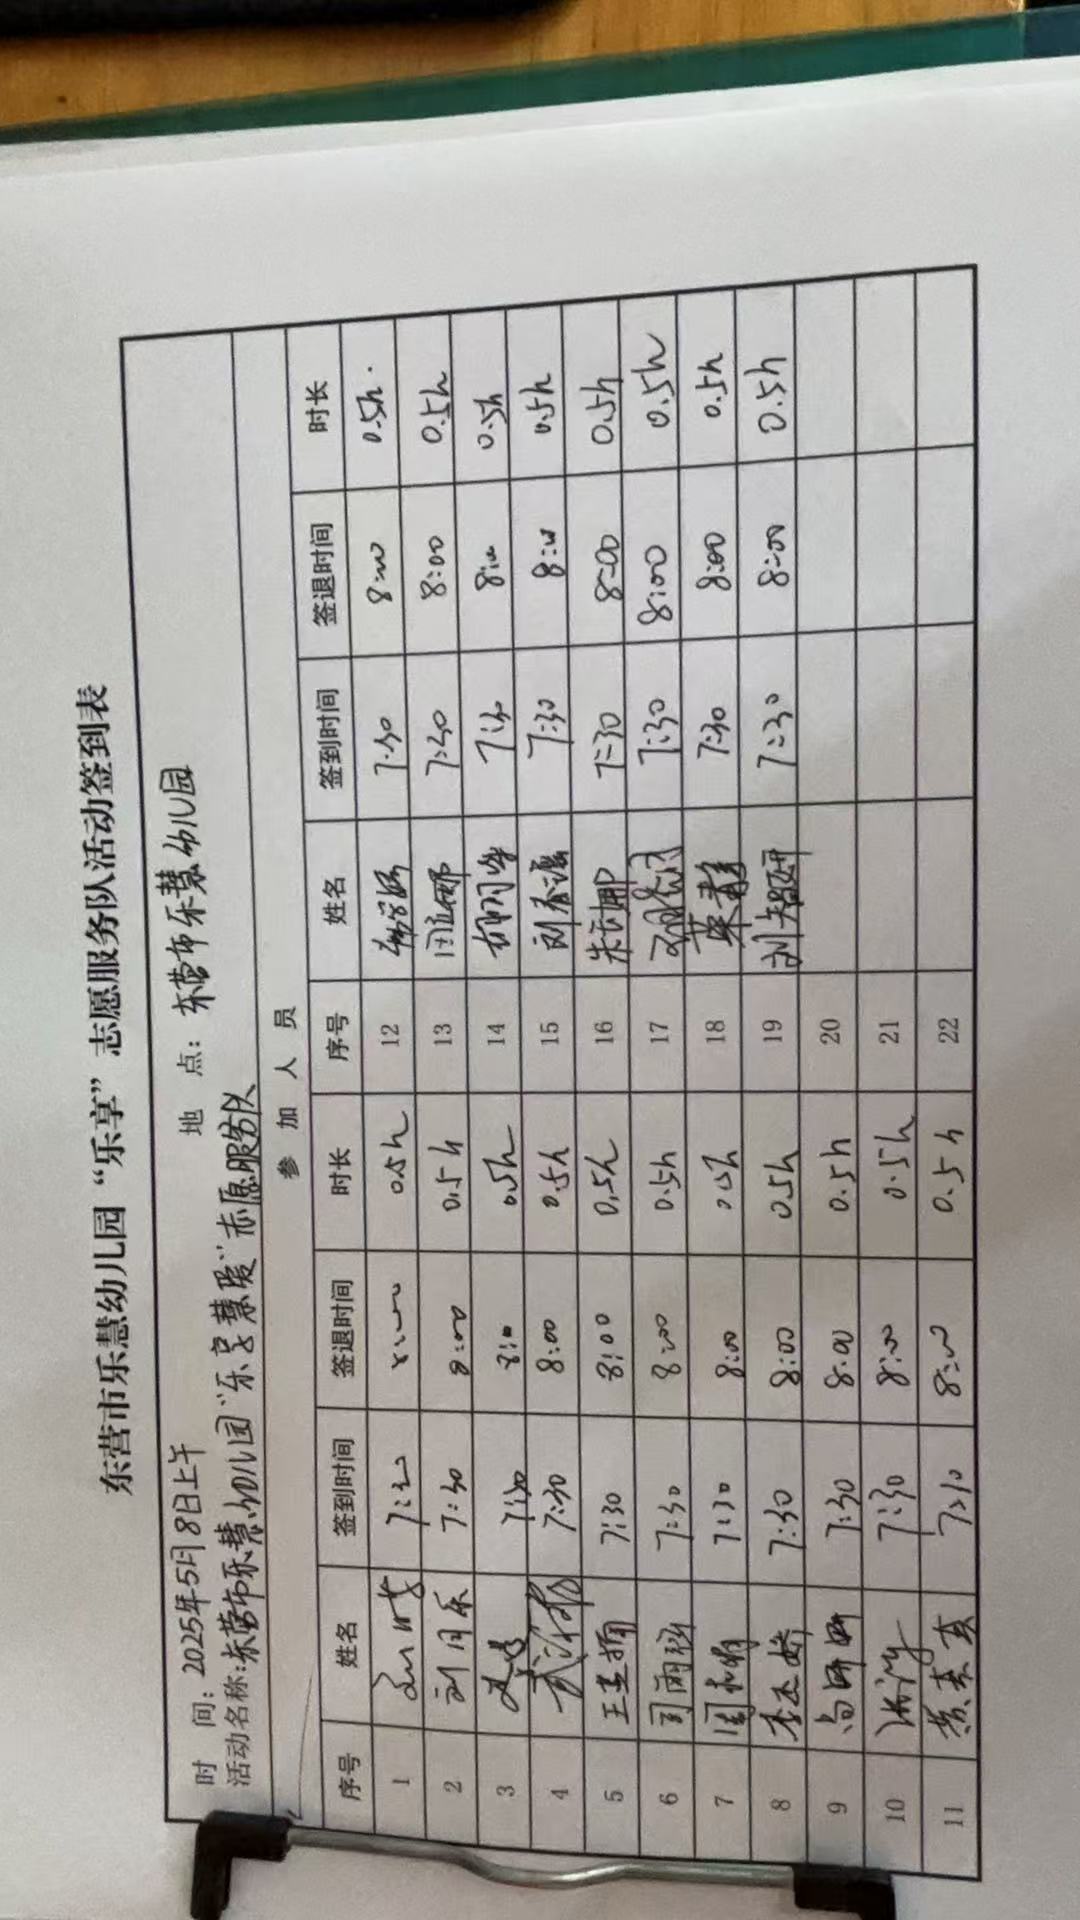 东营市乐慧幼儿园“乐享”志愿服务队活动签到表
时 间：2025年5月8日上午 地 点：东营市乐慧幼儿园
活动名称：东营市乐慧幼儿园“乐享慧爱”志愿服务队
参 加 人 员
序号 姓名 签到时间 签退时间 时长 序号 姓名 签到时间 签退时间 时长
1 7:30 8:00 0.5h 12 7:30 8:00 0.5h.
2 刘月乐 7:30 8:00 0.5h 13 7:30 8:00 0.5h
3 7:30 8:00 0.5h 14 7:30 8:00 0.5h
4 7:30 8:00 0.5h 15 刘春漉 7:30 8:00 0.5h
5 王孟楠 7:30 8:00 0.5h 16 朱娜 7:30 8:00 0.5h
6 司雨秝 7:30 8:00 0.5h 17 7:30 8:00 0.5h
7 7:30 8:00 0.5h 18 7:30 8:00 0.5h
8 李孟娇 7:30 8:00 0.5h 19 刘智妍 7:30 8:00 0.5h
9 尚妍妍 7:30 8:00 0.5h 20
10 7:30 8:00 0.5h 21
11 7:30 8:00 0.5h 22